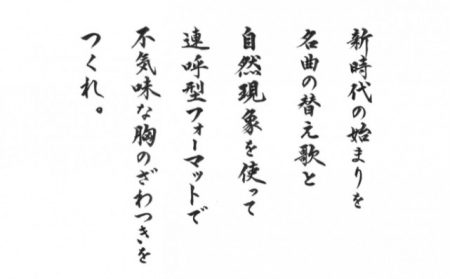 新時代の始まりを
名曲の替え歌と
自然現象を使って
連呼型フォーマットで
不気味な胸のざわつきを
つくれ。